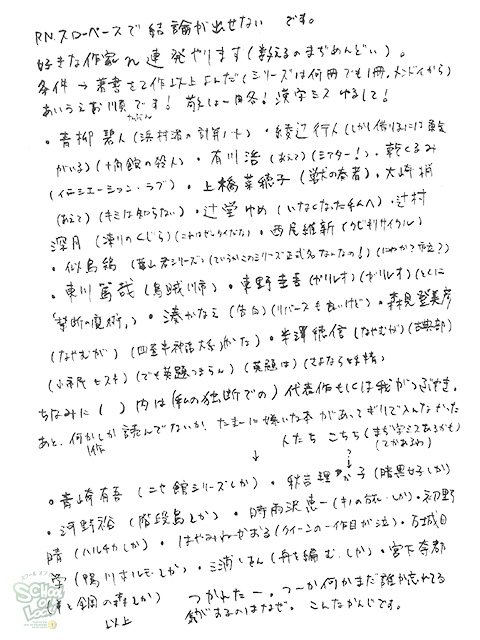 P.N. スローペースで結論が出せない です。
好きな作家 連発やります(数えるのまぢめんどい)。
条件→著書さて作以上よんだ(シリーズは何冊でも1冊。メンドイから)
あいうえお順です! 敬しょー略! 漢字ミスゆるして!
・青柳碧人(浜村渚の計算ノート)・綾辻行人(しかし偽りほには
がいる)(十角館の殺人)・有川浩(あえて)(シアター!)・乾くるみ
(イニシエーション・ラブ)・上橋菜穂子(獣の奏者)・大崎梢
(あえて)(キミは知らない)・辻堂ゆめ(いなくなった私へ)・辻村
深月(凍りのくじら)(これはぜったいだな)・西尾維新(クビキリサイクル)
・似鳥鶏(葉山君シリーズ)(ていうかこのシリーズ正式名なんなの!)(にわか?市立?)
・東川篤哉(烏賊川市)・東野圭吾(ガリレオ)(ガリレオ)(とくに
「禁断の魔術」)・湊かなえ(告白)(リバースも良いけど)・森見登美彦
(なやむが)(四畳半神話大系かな)・米澤穂信(なやむが)(古典部)
(小市民もスキ)(でも英題つまらん)(英題は)(さよなら妖精)
ちなみに( )内は(私の独断での)代表作もしくは我がつぶやき。
あと、何かしか読んでないか、たまーに嫌いな本があってギリで入んなかった
1作 人たち こちら(まぢ字ミスあるかも)
↓ ? (てかあるわ)
・青崎有吾(ニセ館シリーズしか)・秋吉理香子(暗黒女子しか)
・河野裕(階段島しか)・時雨沢恵一(キノの旅しか)・初野
晴(ハルチカしか)・はやみねかおる(クイーンの一作目が泣)・万城目
学(鴨川ホルモーしか)・三浦しをん(舟を編むしか)・宮下奈都
(羊と鋼の森しか) つかれたー。つーか何かまだ誰か忘れてる
以上 気がするのはなぜ。こんなかんじです。
SCHOOL OF LOCK!